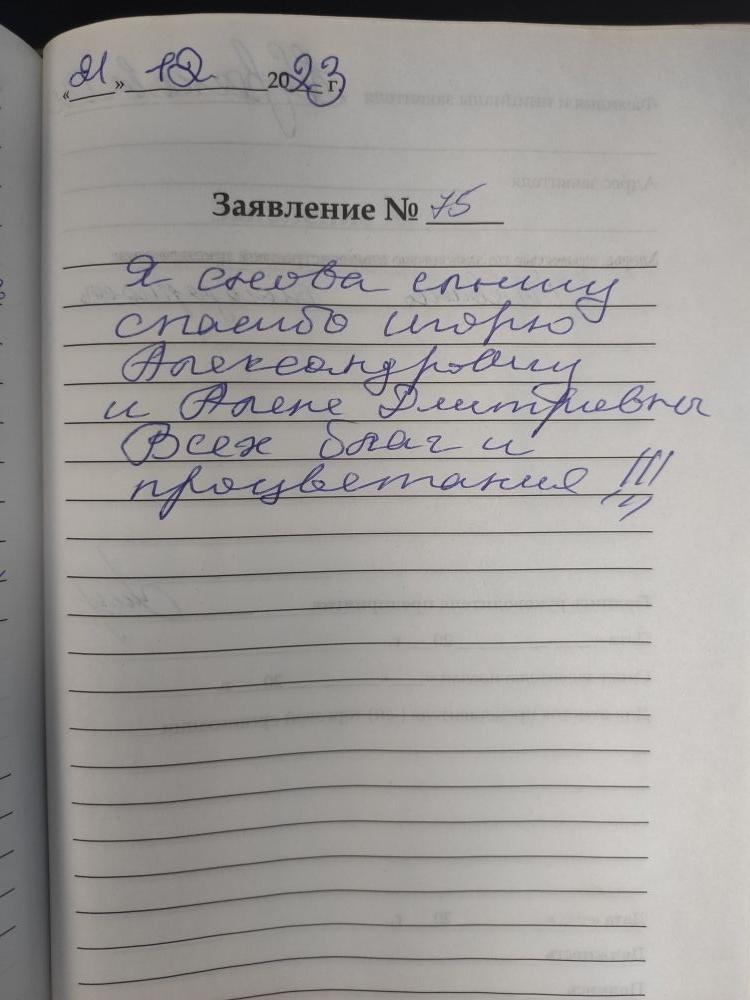 «21» 12 2023 г.
Заявление № 75
Я снова спишу
спасибо игорю
Александровичу
и Алене Дмитриевны
Всех благ и
процветания !!!